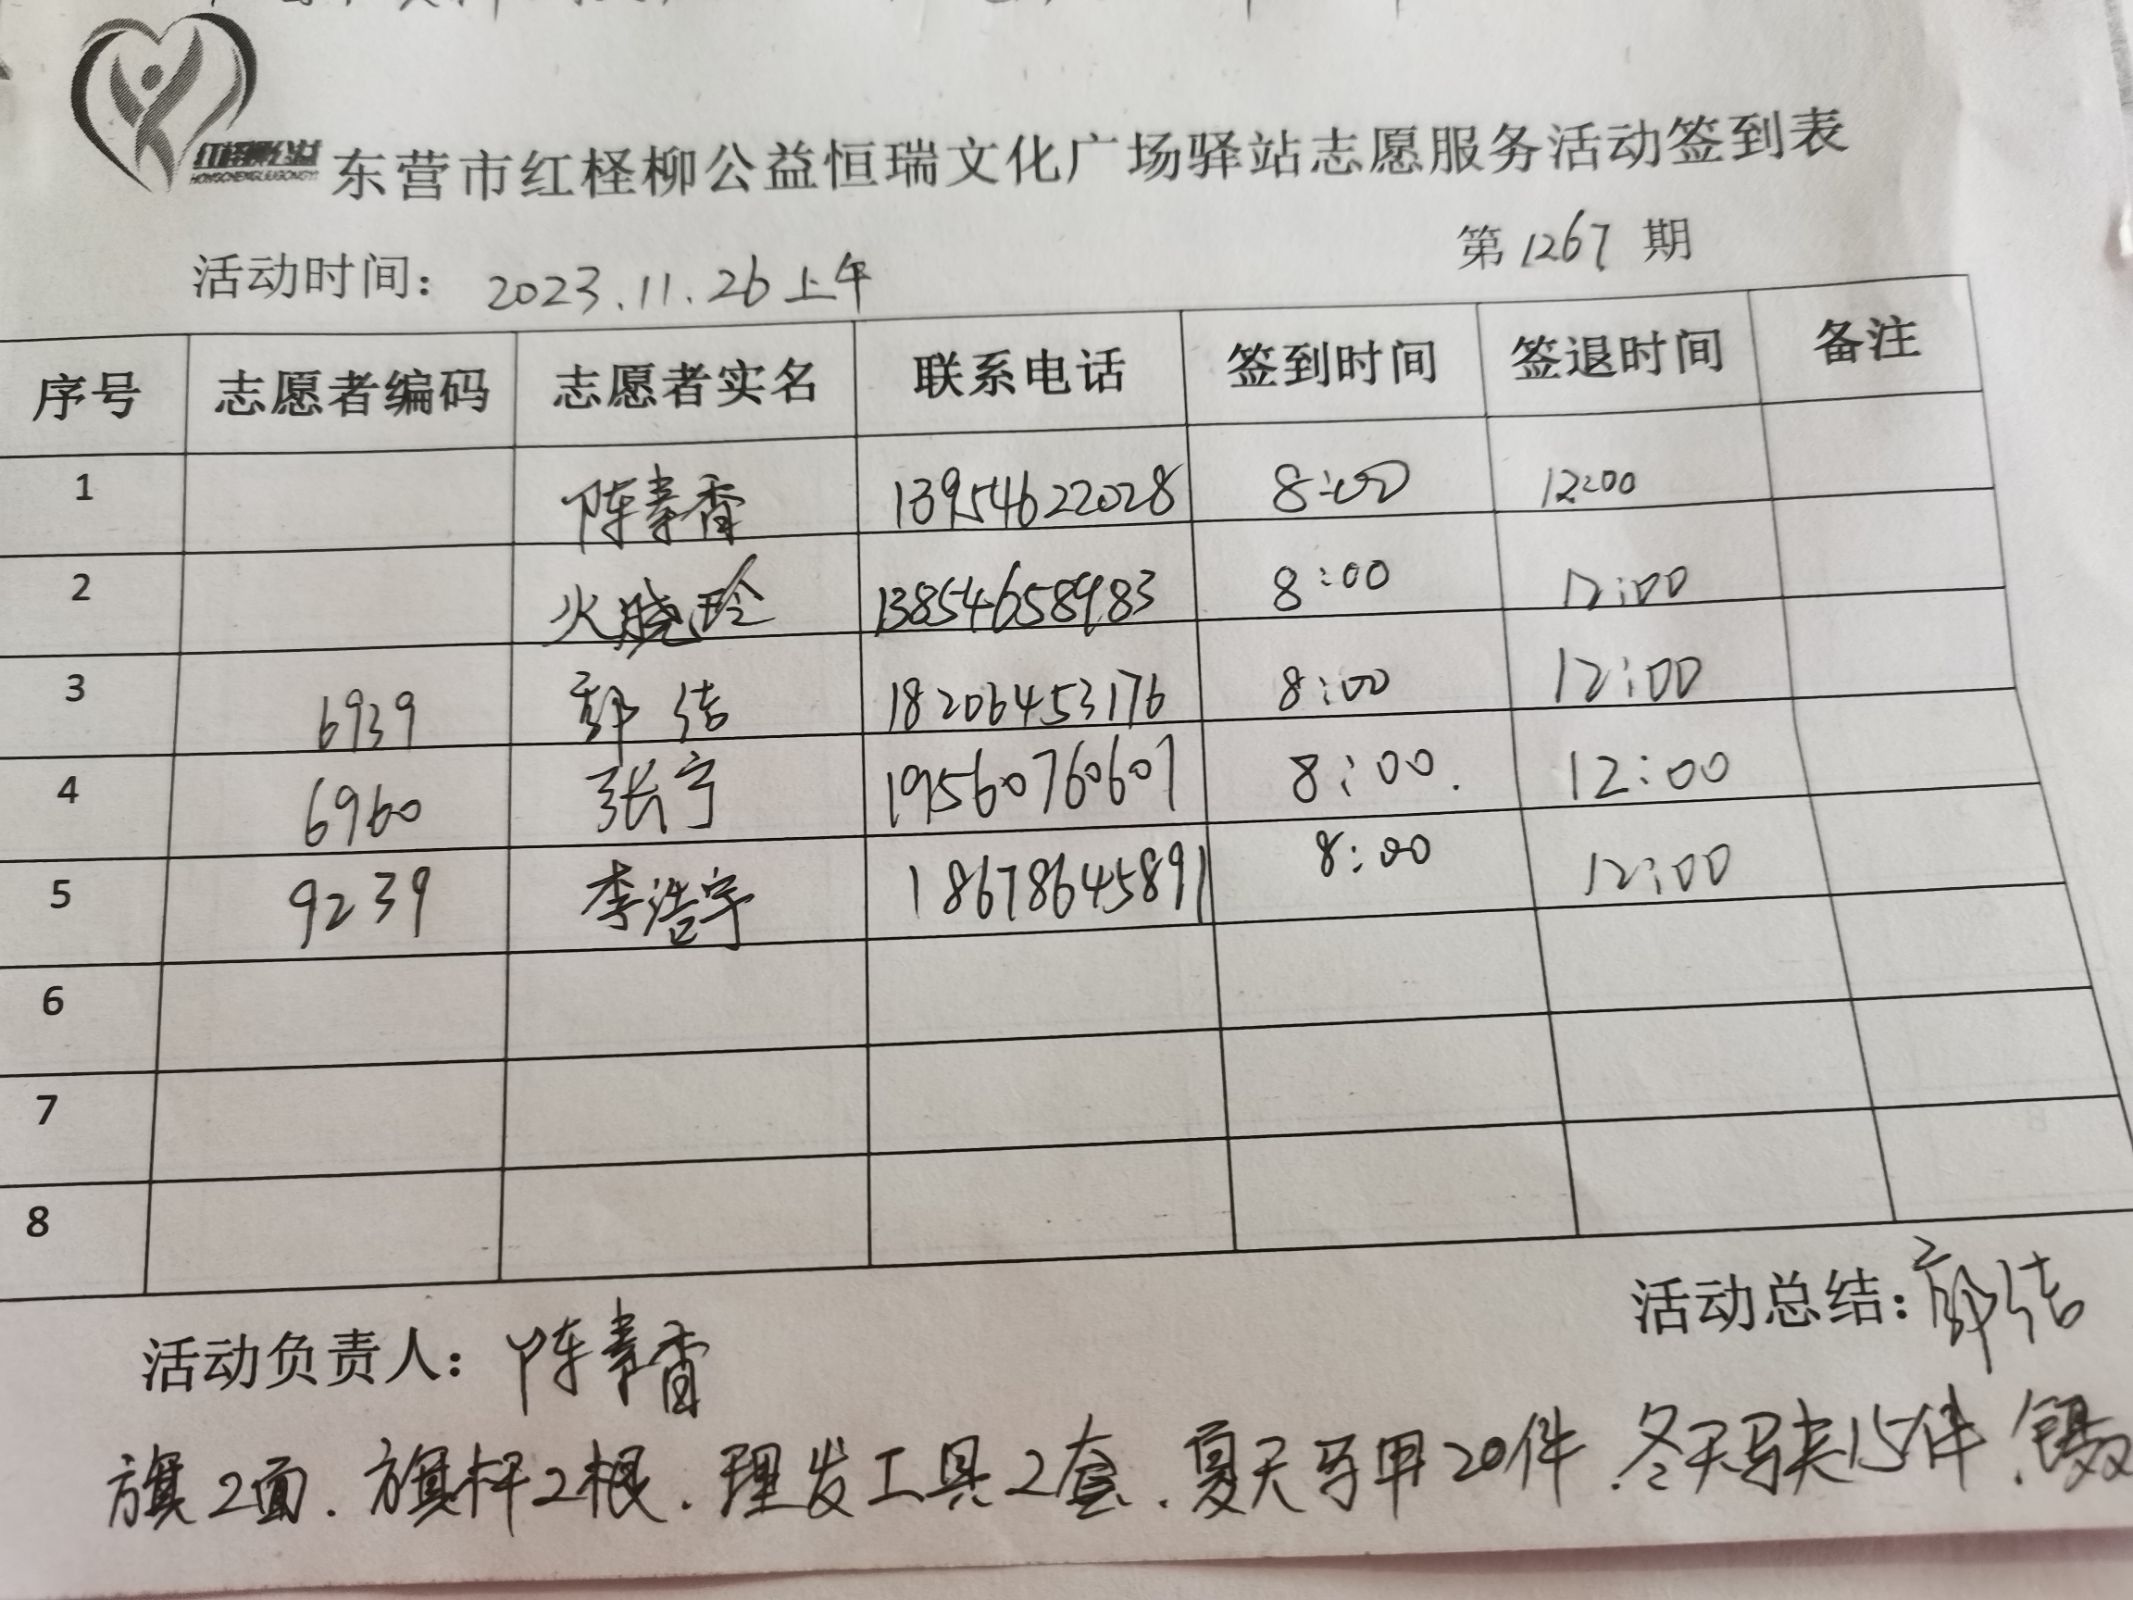 红柽柳公益
HONGCHENGLIUGONGYI
东营市红柽柳公益恒瑞文化广场驿站志愿服务活动签到表
活动时间： 2023.11.26上午 第1267期
序号 志愿者编码 志愿者实名 联系电话 签到时间 签退时间 备注
1 陈青香 13954622028 8:00 12:00
2 火晓玲 13854658983 8:00 12:00
3 6939 郭洁 18206453176 8:00 12:00
4 6960 张宁 19560760607 8:00. 12:00
5 9239 李浩宇 18678645891 8:00 12:00
6
7
8
活动负责人：陈青香 活动总结：郭洁
旗2面.旗杆2根.理发工具2套.夏天马甲20件.冬天马夹15件.